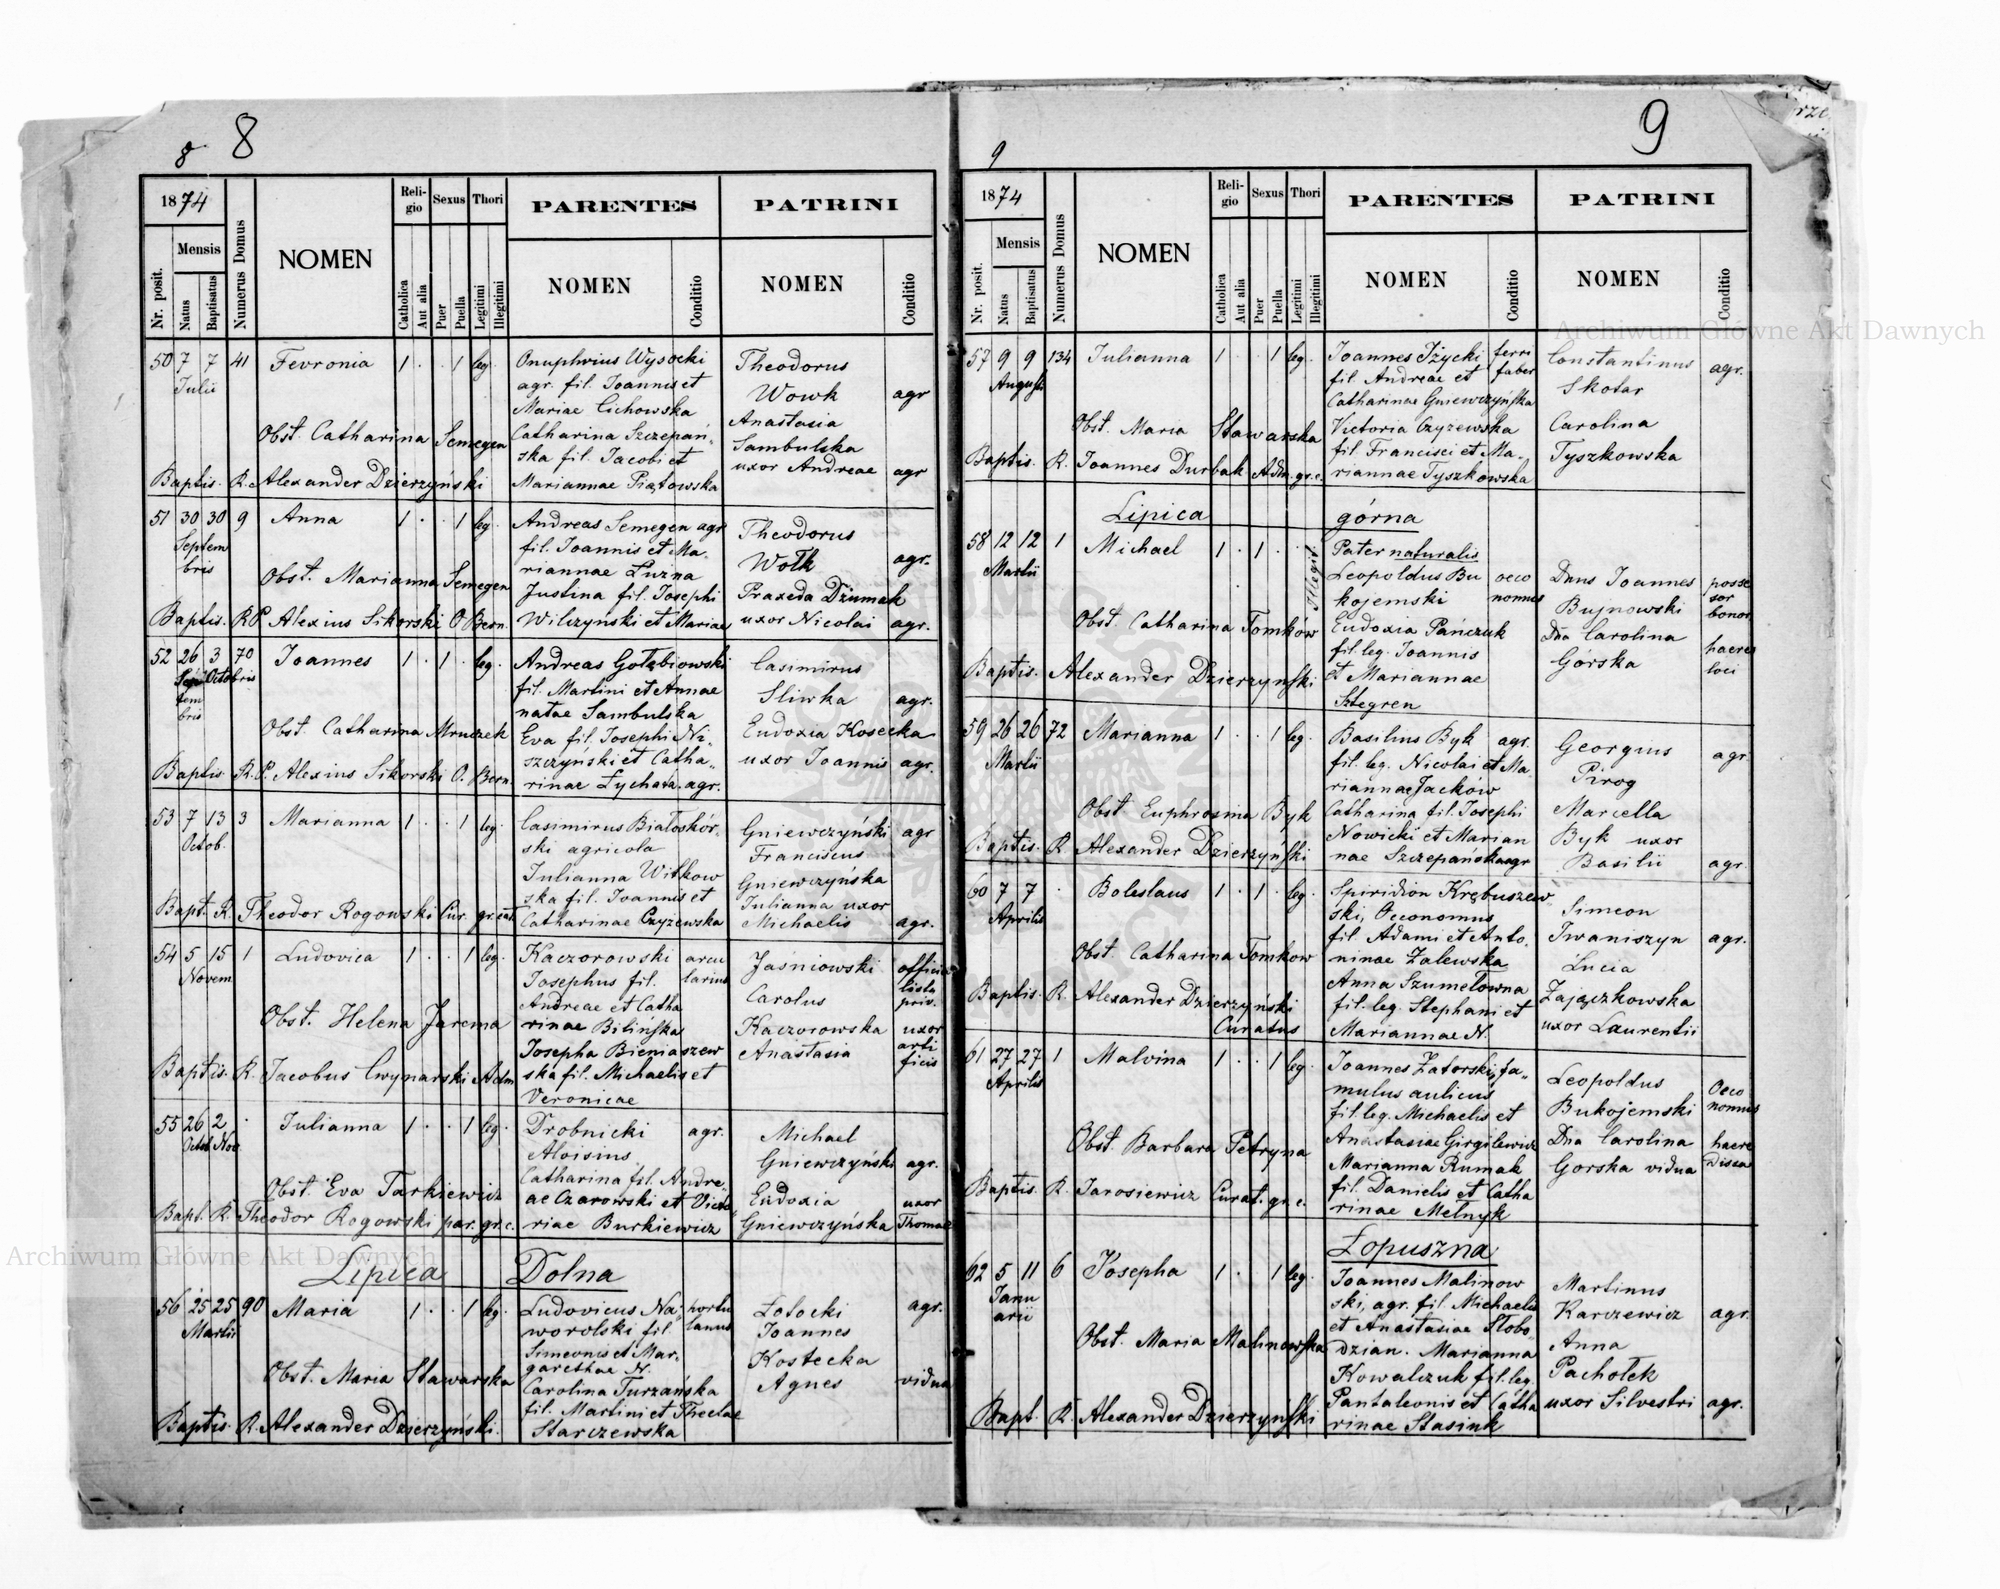 8 8
1874
Nr. posit.
Mensis
Natus
Baptisatus
Numerus Domus
NOMEN
Religio
Catholica
Aut alia
Sexus
Puer
Puella
Thori
Legitimi
Illegitimi
PARENTES
NOMEN
Conditio
PATRINI
NOMEN
Conditio
50 7 7 41 Fevronia 1 . . 1 leg. Onuphrius Wysocki Theodorus
Julii agr. fil. Joannis et Wowk agr
Mariae Cichowska Anastasia
Obst. Catharina Semegen Catharina Szczepań- Sambulska
ska fil. Jacobi et uxor Andreae agr
Baptis. R. Alexander Dzierzyński Mariannae Piątowska
51 30 30 9 Anna 1 . . 1 leg. Andreas Semegen agr Theodorus
Septem fil. Joannis et Ma- Wolk agr.
bris riannae Luzna
Obst. Marianna Semegen Justina fil. Josephi Praxeda Dziumak
Baptis. R.P. Alexius Sikorski O Bern. Wilczynski et Mariae uxor Nicolai agr.
52 26 3 70 Joannes 1 . 1 . leg. Andreas Gołębiowski Casimirus
Sep Octobris fil. Martini et Annae Sliwka agr.
tem natae Sambulska
bris
Obst. Catharina Mruczek Eva fil. Josephi Ni- Eudoxia Kosecka
szczyński et Catha- uxor Joannis agr.
Baptis. R.P. Alexius Sikorski O. Bern. rinae Łychara. agr.
53 7 13 3 Marianna 1 . . 1 leg. Casimirus Białoskór- Gniewczyński agr
Octob. ski agricola Franciscus
Julianna Witkow Gniewczyńska
ska fil. Joannis et Julianna uxor
Bapt. R. Theodor Rogowski Cur. gr. cat. Catharinae Czyzewska Michaelis agr.
54 5 15 1 Ludovica 1 . . 1 leg. Kaczorowski arcu Jaśniowski officia
Novem Josephus fil. larius Carolus lista
Andreae et Catha priv.
Obst. Helena Jarema rinae Bilińska Kaczorowska uxor
Josepha Bieniaszew Anastasia arti
Baptis. R. Jacobus Cwynarski Adm ska fil. Michaelis et ficis
Veronicae
55 26 2 . Julianna 1 . . 1 leg. Drobnicki agr. Michael
Octob Nov Aloisius Gniewczyński agr.
Catharina fil. Andre-
Obst. Eva Tarkiewicz ae Czarowski et Victo Eudoxia uxor
Bapt. R. Theodor Rogowski par. gr. c. riae Burkiewicz Gniewczyńska Thomae
Lipica Dolna
56 25 25 90 Maria 1 . . 1 leg. Ludovicus Na- hortu Łotocki agr.
Martii worolski fil lanus Joannes
Simeonis et Mar- Kostecka
garethae N.
Obst. Maria Stawarska Carolina Turzańska Agnes vidua
fil. Martini et Theclae
Baptis. R. Alexander Dzierzyński. Starczewska
9 9
1874
Nr. posit.
Mensis
Natus
Baptisatus
Numerus Domus
NOMEN
Religio
Catholica
Aut alia
Sexus
Puer
Puella
Thori
Legitimi
Illegitimi
PARENTES
NOMEN
Conditio
PATRINI
NOMEN
Conditio
57 9 9 134 Julianna 1 . 1 leg. Joannes Iżycki ferri Constantinus agr.
Augusti fil. Andreae et faber Skotar
Catharinae Gniewczyńska
Obst. Maria Stawarska Victoria Czyzewska Carolina
fil. Francisci et Ma- Tyszkowska
Baptis. R. Joannes Durbak Adm. gr. c. riannae Tyszkowska
Lipica górna
58 12 12 1 Michael 1 . 1 . Illegit. Pater naturalis
Martii Leopoldus Bu oeco Dnus Joannes posse
kojemski nomus Bujnowski sor
bonor
Obst. Catharina Tomków Eudoxia Pańczuk Dna Carolina haeres
fil. leg. Joannis Górska loci
Baptis. Alexander Dzierzynski et Mariannae
Sztegren
59 26 26 72 Marianna 1 . . 1 leg. Basilius Byk agr. Georgius agr.
Martii fil. leg. Nicolai et Ma- Pirog
riannae Jacków
Obst. Euphrosina Byk Catharina fil. Josephi Marcella
Baptis. R Alexander Dzierzyński Nowicki et Marian Byk uxor
nae Szczepanska agr Basilii agr.
60 7 7 . Boleslaus 1 . 1 . leg. Spiridion Krębuszew-
Aprilis ski, Oeconomus Simeon
fil. Adami et Anto- Iwaniszyn agr.
Obst. Catharina Tomkow ninae Zalewska Lucia
Baptis. R. Alexander Dzierzyński Anna Szumełowna Zajączkowska
Curatus fil. leg. Stephani et uxor Laurentii
Mariannae N.
61 27 27 1 Malvina 1 . . 1 leg. Joannes Zatorski, fa- Leopoldus Oeco
Aprilis mulus aulicus Bukojemski nomus
fil. leg. Michaelis et
Obst. Barbara Petryna Anastasiae Girgilewicz Dna Carolina haere
Marianna Rumak Gorska vidua dissa
Baptis. R. Jarosiewicz Curat. gr. c. fil. Danielis et Catha
rinae Melnyk
Łopuszna
62 5 11 6 Josepha 1 . . 1 leg. Joannes Malinow Martinus
Janu ski, agr. fil. Michaelis Karczewicz agr.
arii et Anastasiae Słobo-
Obst. Maria Malinowska dzian. Marianna Anna
Kowalczuk fil. leg. Pachołek
Bapt. R. Alexander Dzierzyński Pantaleonis et Catha uxor Silvestri agr.
rinae Stasiuk
Archiwum Główne Akt Dawnych
Archiwum Główne Akt Dawnych